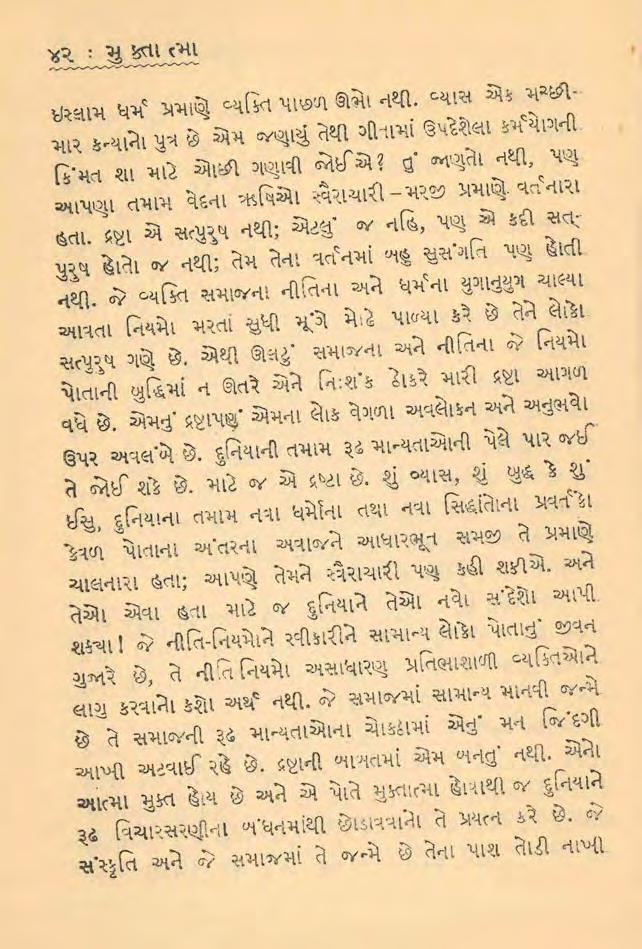 ૪૨ : મુક્તાત્મા
ઇસ્લામ ધર્મ પ્રમાણે વ્યક્તિ પાછળ ઊભો નથી. વ્યાસ એક મચ્છી-
માર કન્યાનો પુત્ર છે એમ જણાયું તેથી ગીતામાં ઉપદેશેલા કર્મયોગની
કિંમત શા માટે ઓછી ગણાવી જોઈએ? તું જાણતો નથી, પણ
આપણા તમામ વેદના ઋષિઓ સ્વૈરાચારી – મરજી પ્રમાણે વર્તનારા
હતા. દ્રષ્ટા એ સત્પુરુષ નથી; એટલું જ નહિ, પણ એ કદી સત્-
પુરુષ હોતો જ નથી; તેમ તેના વર્તનમાં બહુ સુસંગતિ પણ હોતી
નથી. જે વ્યક્તિ સમાજના નીતિના અને ધર્મના યુગાનુયુગ ચાલ્યા
આવતા નિયમો મરતાં સુધી મૂંગે મોઢે પાળ્યા કરે છે તેને લોકો
સત્પુરુષ ગણે છે. એથી ઊલટું સમાજના અને નીતિના જે નિયમો
પોતાની બુદ્ધિમાં ન ઊતરે એને નિઃશંક ઠોકરે મારી દ્રષ્ટા આગળ
વધે છે. એમનું દ્રષ્ટાપણું એમના લોક વેગળા અવલોકન અને અનુભવો
ઉપર અવલંબે છે. દુનિયાની તમામ રૂઢ માન્યતાઓની પેલે પાર જઈ
તે જોઈ શકે છે. માટે જ એ દ્રષ્ટા છે. શું વ્યાસ, શું બુદ્ધ કે શું
ઈસુ, દુનિયાના તમામ નવા ધર્મોના તથા નવા સિદ્ધાંતોના પ્રવર્તકો
કેવળ પોતાના અંતરના અવાજને આધારભૂત સમજી તે પ્રમાણે
ચાલનારા હતા; આપણે તેમને સ્વૈરાચારી પણ કહી શકીએ. અને
તેઓ એવા હતા માટે જ દુનિયાને તેઓ નવો સંદેશો આપી
શક્યા! જે નીતિ-નિયમોને સ્વીકારીને સામાન્ય લોકો પોતાનું જીવન
ગુજારે છે, તે નીતિ નિયમો અસાધારણ પ્રતિભાશાળી વ્યક્તિઓને
લાગુ કરવાનો કશો અર્થ નથી. જે સમાજમાં સામાન્ય માનવી જન્મે
છે તે સમાજની રૂઢ માન્યતાઓના ચોકઠામાં એનું મન જિંદગી
આખી અટવાઈ રહે છે. દ્રષ્ટાની બાબતમાં એમ બનતું નથી. એનો
આત્મા મુક્ત હોય છે અને એ પોતે મુક્તાત્મા હોવાથી જ દુનિયાને
રૂઢ વિચારસરણીના બંધનમાંથી છોડાવવાનો તે પ્રયત્ન કરે છે. જે
સંસ્કૃતિ અને જે સમાજમાં તે જન્મે છે તેના પાશ તોડી નાખી